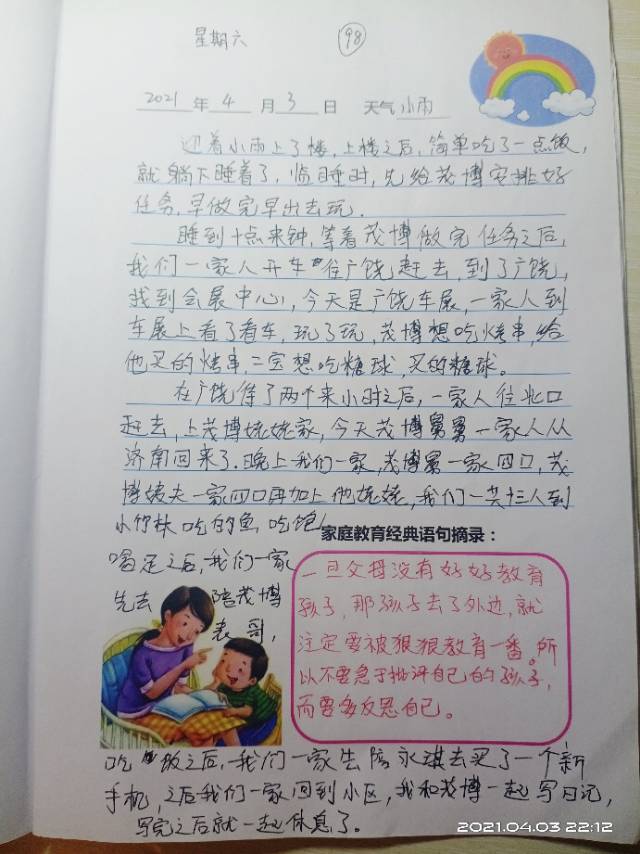 星期六
98
2021 年 4 月 3 日 天气 小雨
迎着小雨上了楼，上楼之后，简单吃了一点饭，
就躺下睡着了，临睡时，先给茂博安排好
任务，早做完早出去玩．
睡到十点来钟，等着茂博做完任务之后，
我们一家人开车往广饶赶去，到了广饶，
找到会展中心，今天是广饶车展，一家人到
车展上看了看车，玩了玩，茂博想吃烤串，给
他买的烤串，二宝想吃糖球，买的糖球。
在广饶待了两个来小时之后，一家人往北口
赶去，上茂博姥姥家，今天茂博舅舅一家人从
济南回来了．晚上我们一家，茂博舅一家四口，茂
博姨夫一家四口再加上他姥姥，我们一共十三人到
小竹林吃的鱼，吃饱
喝足之后，我们一家
先去 陪茂博
表哥，
家庭教育经典语句摘录：
一旦父母没有好好教育
孩子，那孩子去了外边，就
注定要被狠狠教育一番。所
以不要急于批评自己的孩子，
而要多反思自己。
吃饭之后，我们一家先陪永琪去买了一个新
手机，之后我们一家回到小区，我和茂博一起写日记，
写完之后就一起休息了。
2021.04.03 22:12